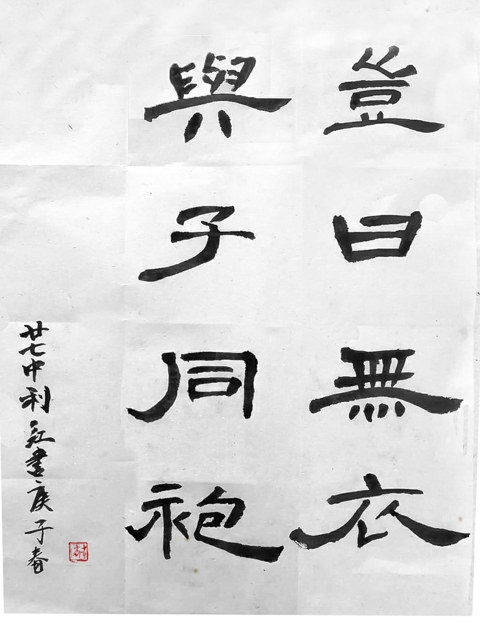 豈曰無衣
與子同袍
廿七中利紅書庚子春